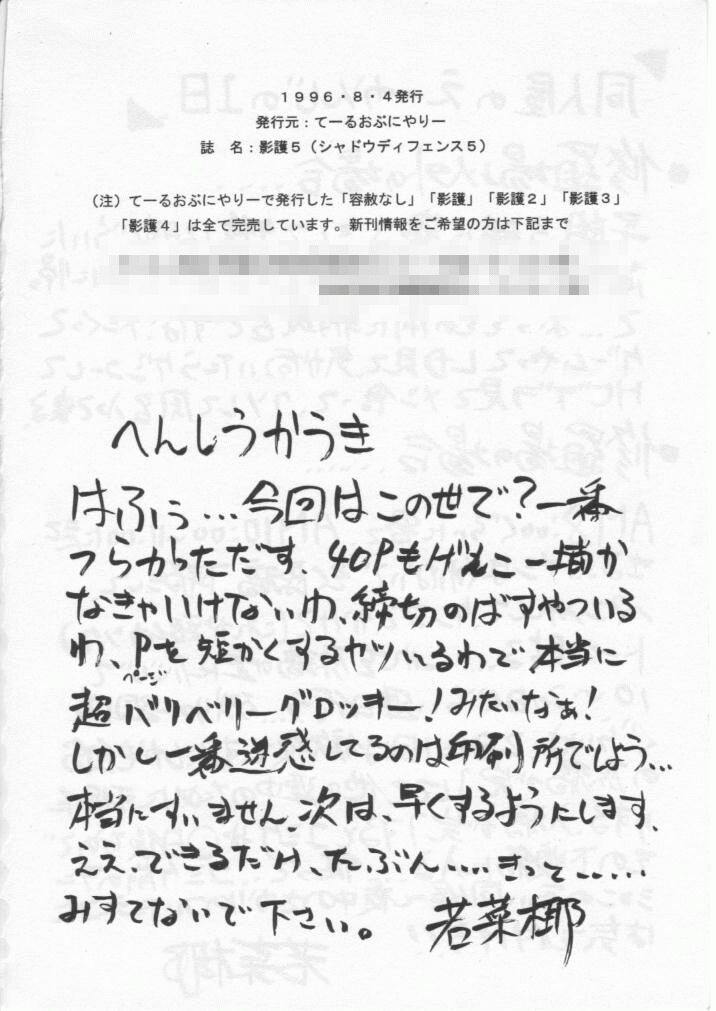 1996・8・4発行
発行元：てーるおぶにやりー
誌　名：影護5（シャドウディフェンス5）
（注）てーるおぶにやりーで発行した「容赦なし」「影護」「影護2」「影護3」
「影護4」は全て完売しています。新刊情報をご希望の方は下記まで
へんしうかうき
はふぅ…今回はこの世で？一番
つらかっただす、40Pもげんこー描か
なきゃいけないわ、締切のばすやついる
わ、Pを短かくするヤツいるわで本当に
ページ
超ベリベリーグロッキー！みたいなぁ！
しかし一番迷惑してるのは印刷所でしょう…
本当にすいません。次は、早くするようにします、
ええ、できるだけ、たぶん‥‥きって‥‥‥
みすてないで下さい。 若菜椰